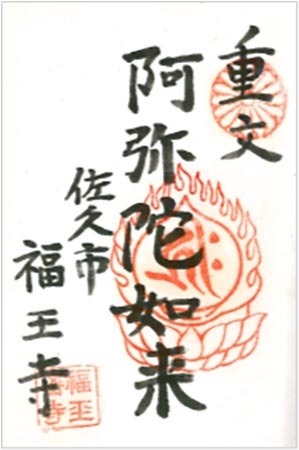 重文
阿弥陀如来
佐久市
福王寺
福王
寺